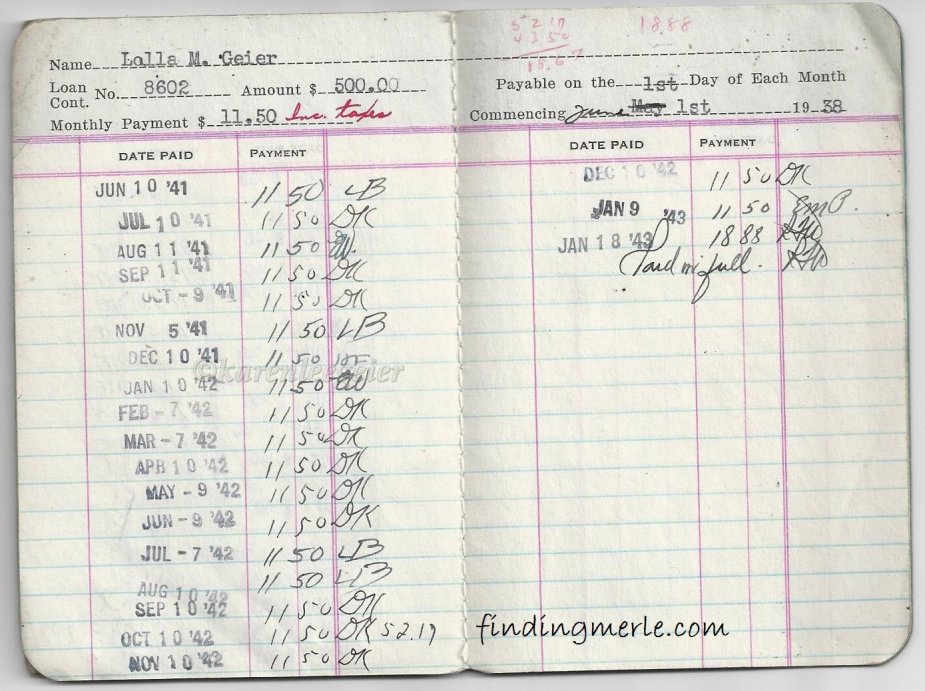 Name Lolla M. Geier
Loan Cont. No. 8602 Amount $ 500.00
Monthly Payment $ 11.50 Inc. taxes
DATE PAID PAYMENT
JUN 10 '41 11 50 LB
JUL 10 '41 11 50 DK
AUG 11 '41 11 50
SEP 11 '41 11 50 DK
OCT - 9 '41 11 50 DK
NOV 5 '41 11 50 LB
DEC 10 '41 11 50
©karenleegeier
JAN 10 '42 11 50
FEB - 7 '42 11 50 DK
MAR - 7 '42 11 50 DK
APR 10 '42 11 50 DK
MAY - 9 '42 11 50 DK
JUN - 9 '42 11 50 DK
JUL - 7 '42 11 50 LB
AUG 10 '42 11 50 LB
SEP 10 '42 11 50 DK
OCT 10 '42 11 50 DK 52.19
NOV 10 '42 11 50 DK
52 19
18.88
Payable on the 1st Day of Each Month
Commencing June May 1st 1938
DATE PAID PAYMENT
DEC 10 '42 11 50 DK
JAN 9 '43 11 50 EMP.
JAN 18 '43 18 88
Paid in full.
findingmerle.com